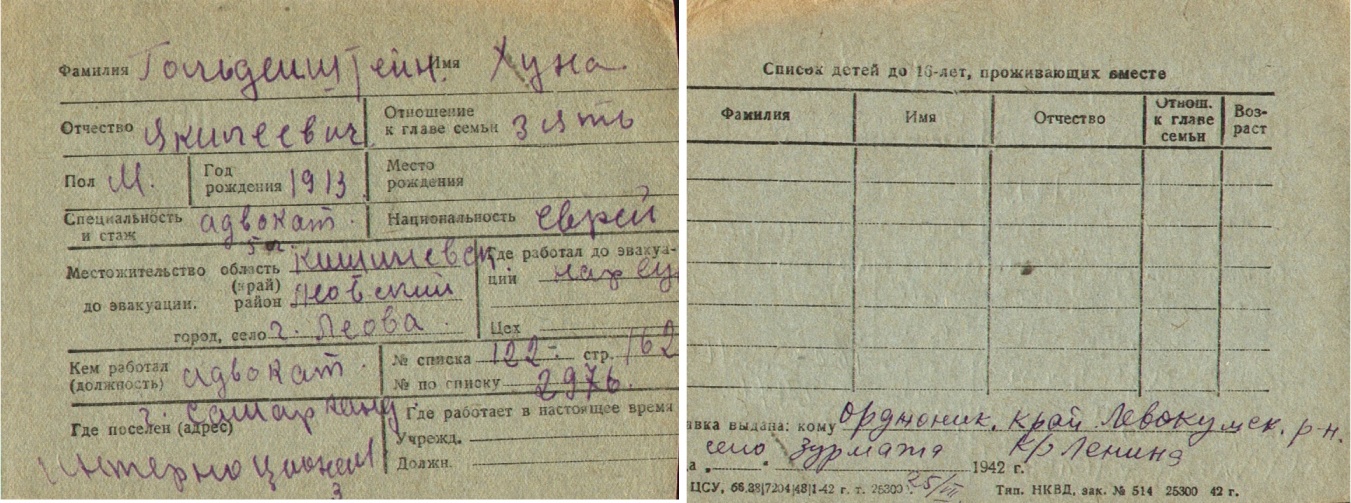 Фамилия Гольденштейн. Имя Хуна
Отчество Отношение к главе семьи зять
Пол М. Год рождения 1913 Место рождения
Специальность и стаж адвокат. Национальность еврей
Местожительство до эвакуации. область (край) Кишиневск Где работал до эвакуации нар су
район Леовский
город, село г. Леова. Цех
Кем работал (должность) адвокат. № списка 122 - стр. 162
№ по списку 2976.
Где поселен (адрес) г. Самарканд Где работает в настоящее время
Учрежд.
Должн.
3
Список детей до 16-лет, проживающих вместе
Фамилия Имя Отчество Отнош. к главе семьи Возраст
авка выдана: кому Орджоник. край Левокумск. р-н.
село Зурмата К/р Ленина
а „ “ 1942 г.
ЦСУ, 66.38|7204|48|1-42 г. т. 25300 25/VI Тип. НКВД, зак. № 514 25300 42 г.